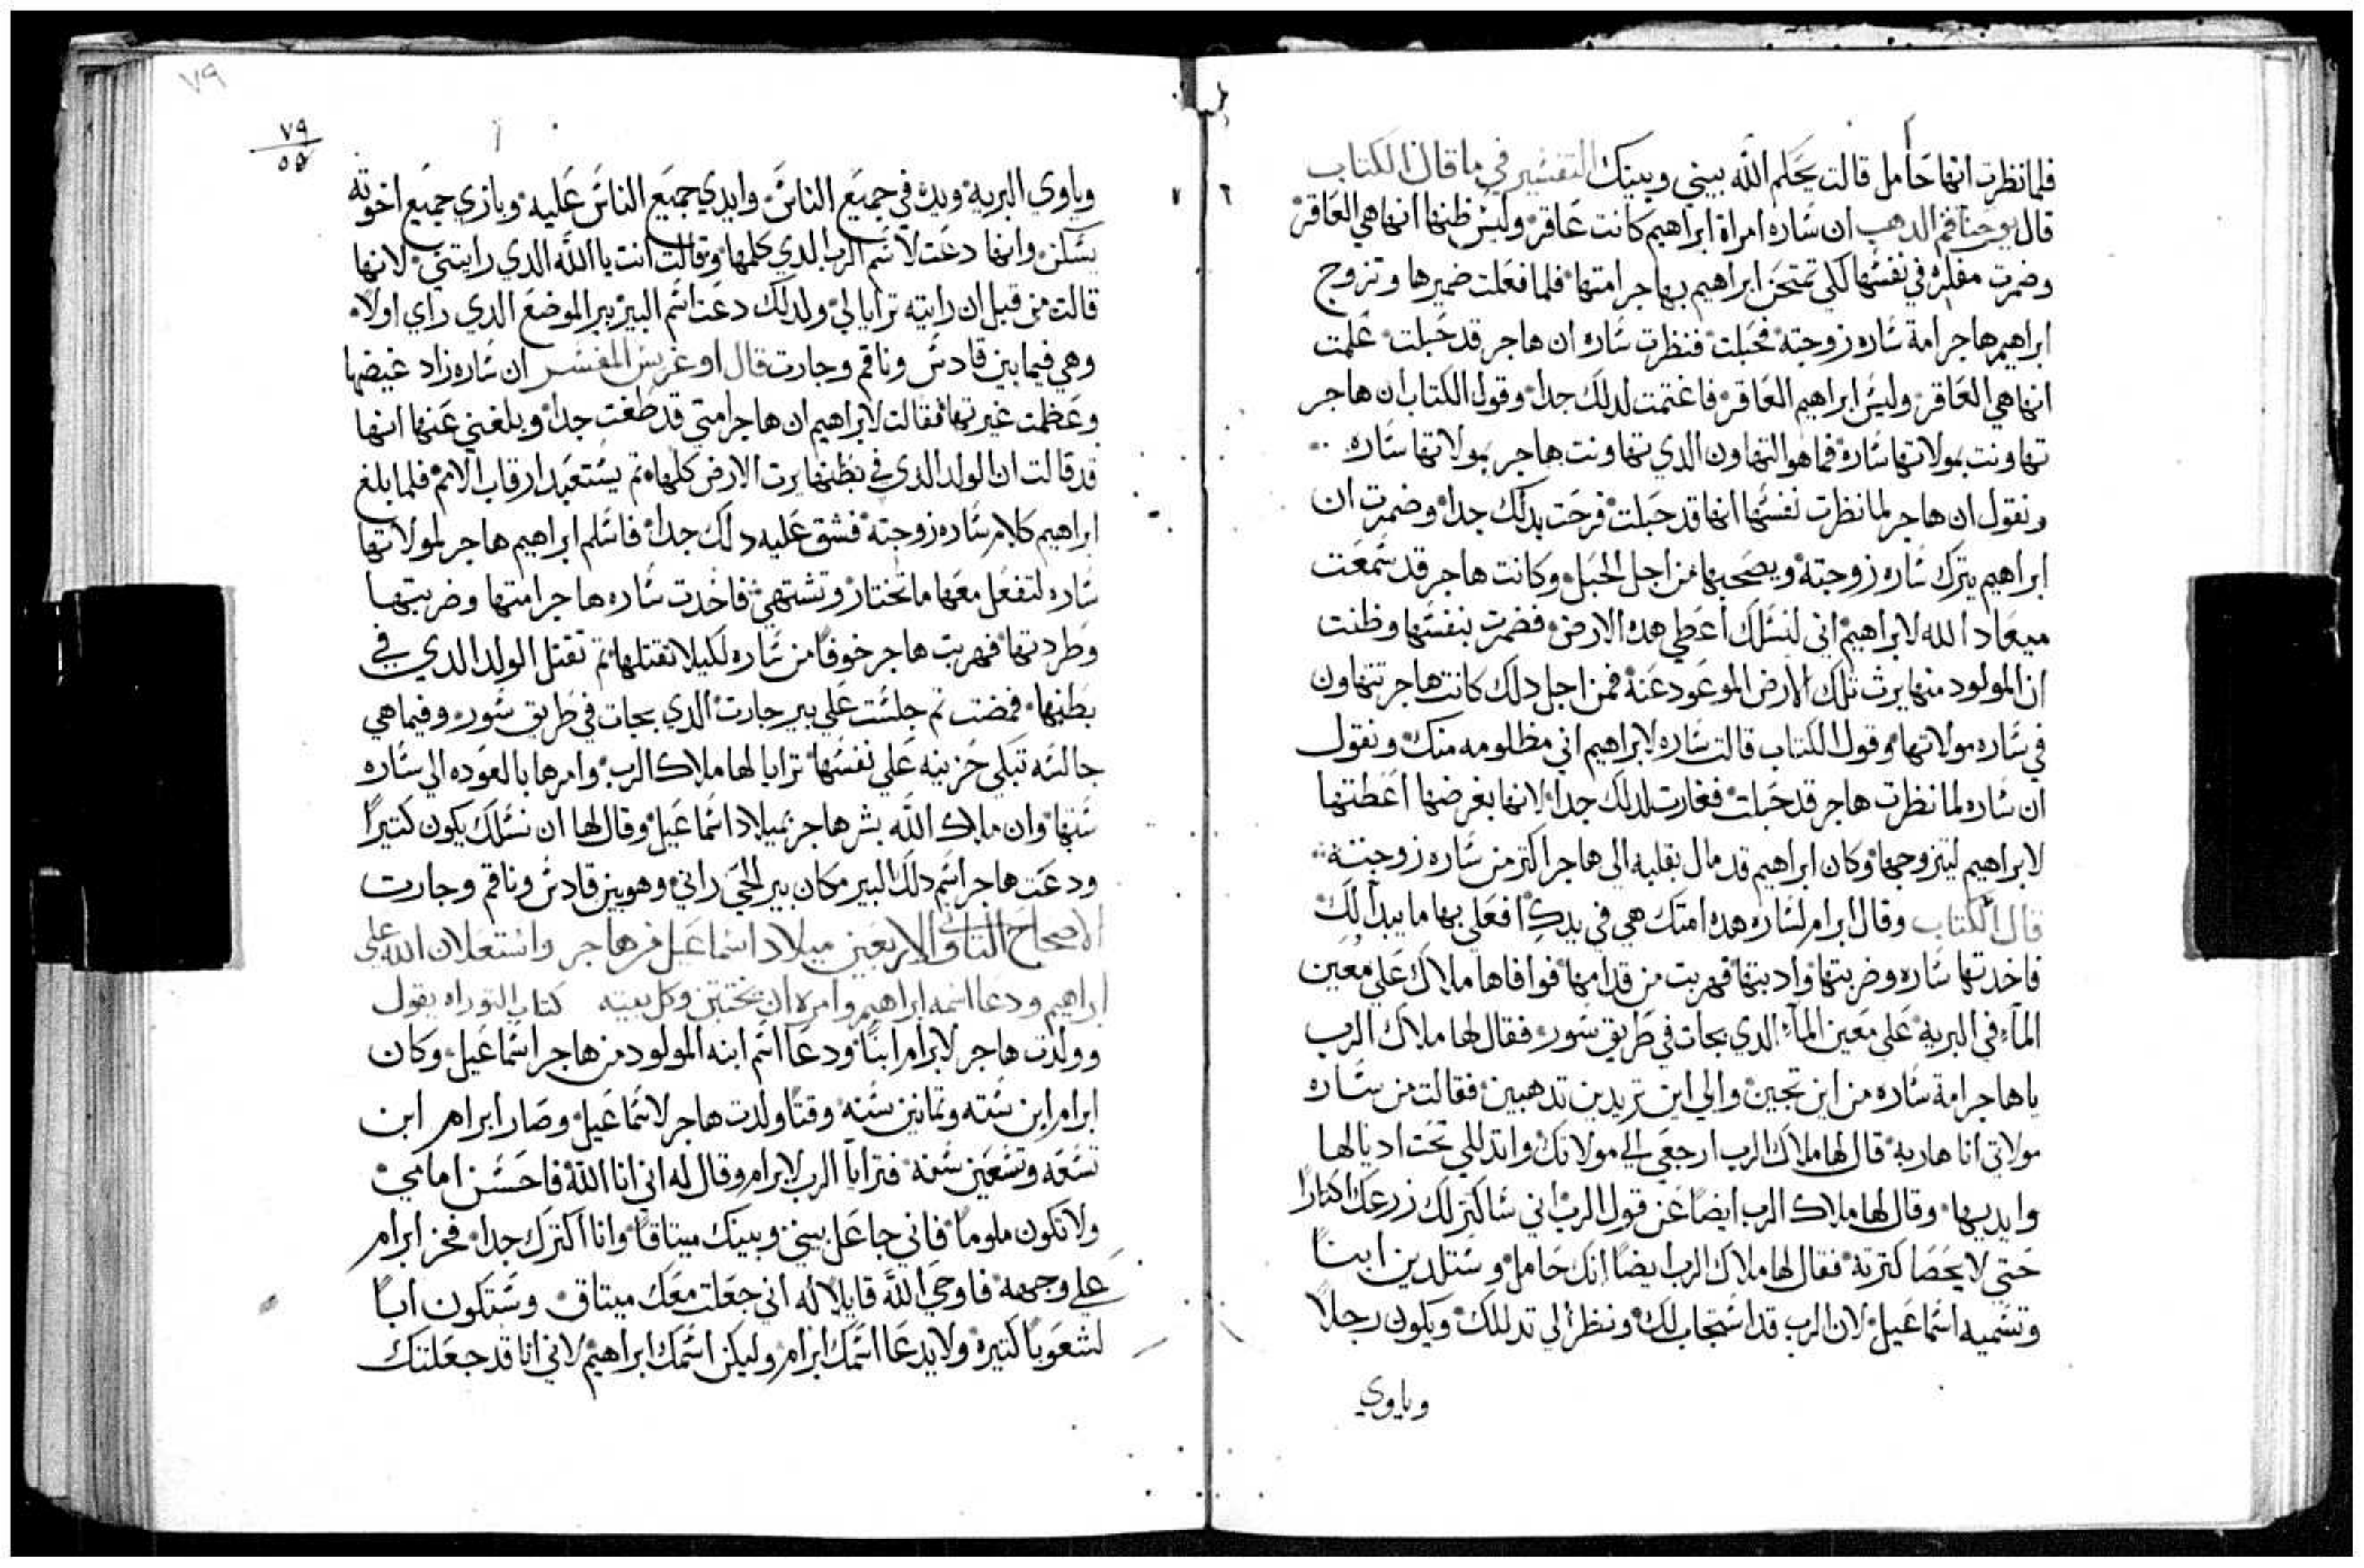 فلما نظرت انها حامل قالت يحكم الله بيني وبينك التفسير في ما قال الكتاب
قال يوحنا فم الدهب ان ساره امراة ابراهيم كانت عاقر وليس ظنها انها هي العاقر
وضمرت مفكره في نفسها لكي تمتحن ابراهيم بهاجر امتها فلما فعلت ضميرها وتزوج
ابراهيم هاجر امة ساره زوجته فحبلت فنظرت ساره ان هاجر قد حبلت علمت
انها هي العاقر وليس ابراهيم العاقر فاغتمت لدلك جدا وقول الكتاب ان هاجر
تهاونت بمولاتها ساره فما هو التهاون الدي تهاونت هاجر بمولاتها ساره
ونقول ان هاجر لما نظرت نفسها انها قد حبلت فرحت بدلك جدا وضمرت ان
ابراهيم يترك ساره زوجته ويصحبها من اجل الحبل وكانت هاجر قد سمعت
ميعاد الله لابراهيم اني لنسلك اعطي هده الارض فضمرت بنفسها وظنت
ان المولود منها يرث تلك الارض الموعود عنه فمن اجل دلك كانت هاجر تتهاون
في ساره مولاتها وقول الكتاب قالت ساره لابراهيم اني مظلومه منك ونقول
ان ساره لما نظرت هاجر قد حبلت فغارت لدلك جدا لانها بغرضها اعطتها
لابراهيم ليتزوجها وكان ابراهيم قد مال بقلبه الي هاجر اكتر من ساره زوجته
قال الكتاب وقال ابرام لساره هده امتك هي في يدك افعلي بها ما يبدا لك
فاخدتها ساره وضربتها وادبتها فهربت من قدامها فوافاها ملاك علي معين
الماء في البريه علي معين الماء الدي بجات في طريق سور فقال لها ملاك الرب
ياهاجر امة ساره من اين تجين والي اين تريدين تدهبين فقالت من ساره
مولاتي انا هاربه قال لها ملاك الرب ارجعي الي مولاتك واتدللي تحت اديالها
وايديها وقال لها ملاك الرب ايضا عن قول الرب اني ساكتر لك زرعك اكتارا
حتي لا يحصا كترته فقال لها ملاك الرب ايضا انك حامل وستلدين ابنا
وتسميه اسماعيل لان الرب قد استجاب لك ونظر الي تدللك ويكون رجلا
وياوي
٧٩
٧٩
وياوي البريه ويده في جميع الناس وايدي جميع الناس عليه وبازي جميع اخوته
يسكن وانها دعت لاسم الرب الدي كلمها وقالت انت يا الله الدي رايتني لانها
قالت من قبل ان رايته ترايا لي ولدلك دعت اسم البير بير الموضع الدي راي اولا
وهي فيما بين قادس وناقم وجارت قال اوغريس المفسر ان ساره زاد غيضها
وعظمت غيرتها فقالت لابراهيم ان هاجر امتي قد طغت جدا وبلغني عنها انها
قد قالت ان الولد الدي في بطنها يرت الارض كلها تم يستعبد ارقاب الامم فلما بلغ
ابراهيم كلام ساره زوجته فشق عليه دلك جدا فاسلم ابراهيم هاجر لمولاتها
ساره لتفعل معها ما تختار وتشتهي فاخدت ساره هاجر امتها وضربتها
وطردتها فهربت هاجر خوفا من ساره لكيلا تقتلها تم تقتل الولد الدي في
بطنها فمضت تم جلست علي بير جارت الدي بجات في طريق سور وفيما هي
جالسه تبكي حزينه علي نفسها ترايا لها ملاك الرب وامرها بالعوده الي ساره
ستها وان ملاك الله بشر هاجر بميلاد اسماعيل وقال لها ان نسلك يكون كتيرا
ودعت هاجر اسم دلك البير مكان بير الحي راني وهو بين قادس وناقم وجارت
الاصحاح التاني والاربعين ميلاد اسماعيل من هاجر واستعلان الله علي
ابراهيم ودعا اسمه ابراهيم وامره ان يختتن وكل بيته كتاب التوراه يقول
وولدت هاجر لابرام ابنا ودعا اسم ابنه المولود من هاجر اسماعيل وكان
ابرام ابن سته وتمانين سنه وقتا ولدت هاجر لاسماعيل وصار ابرام ابن
تسعه وتسعين سنه فترايا الرب لابرام وقال له اني انا الله فاحسن امامي
ولا تكون ملوما فاني جاعل بيني وبينك ميتاقا وانا اكترك جدا فخر ابرام
علي وجهه فاوحي الله قايلا له اني جعلت معك ميتاق وستكون ابا
لشعوبا كتيره ولا يدعا اسمك ابرام وليكن اسمك ابراهيم لاني انا قد جعلتك